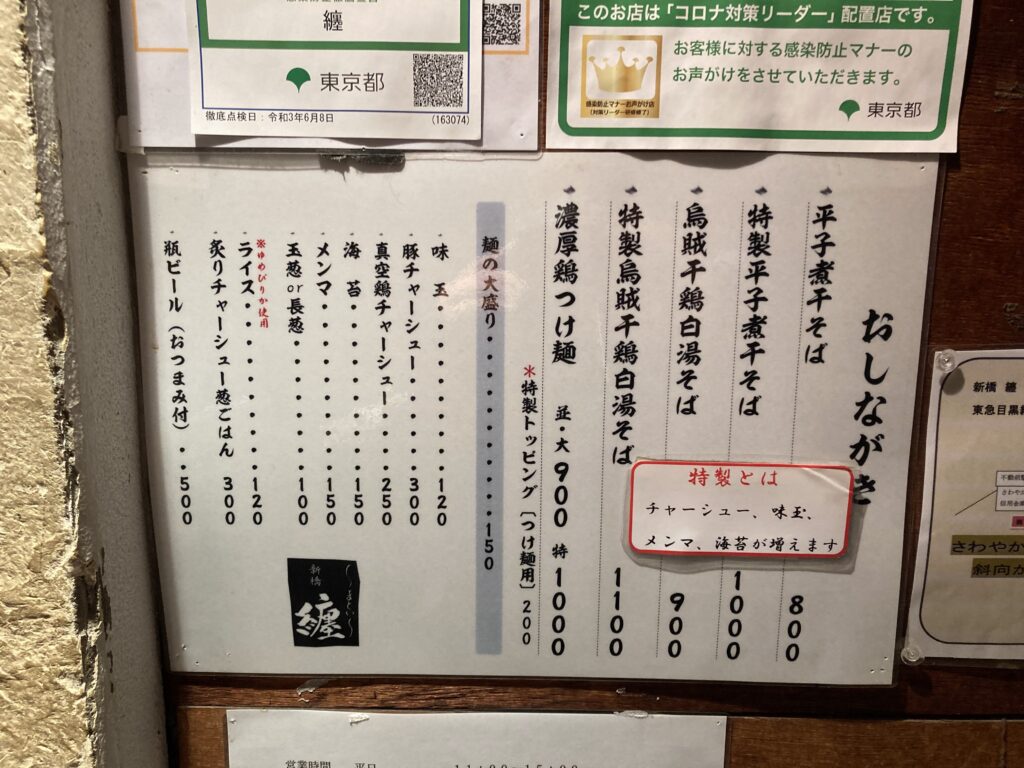 纏
東京都
徹底点検日：令和3年6月8日
(163074)
このお店は「コロナ対策リーダー」配置店です。
お客様に対する感染防止マナーの
お声がけをさせていただきます。
感染防止マナーお声がけ店
(対策リーダー研修修了)
東京都
おしながき
平子煮干そば 800
特製平子煮干そば 1000
烏賊干鶏白湯そば 900
特製烏賊干鶏白湯そば 1100
濃厚鶏つけ麺 並・大 900 特 1000
＊特製トッピング［つけ麺用］200
特製とは
チャーシュー、味玉、
メンマ、海苔が増えます
麺の大盛り・・・・・・・・・・・150
味 玉・・・・・・・・120
豚チャーシュー・・・・・300
真空鶏チャーシュー・・・・250
海 苔・・・・・・・・150
メンマ・・・・・・・・150
玉葱or長葱・・・・・・・100
※ゆめぴりか使用
ライス・・・・・・・・・120
炙りチャーシュー葱ごはん 300
瓶ビール（おつまみ付）・・500
新橋
纏
新橋 纏
東急目黒
さわやか
斜向か
営業時間 平日 11:00~15:00